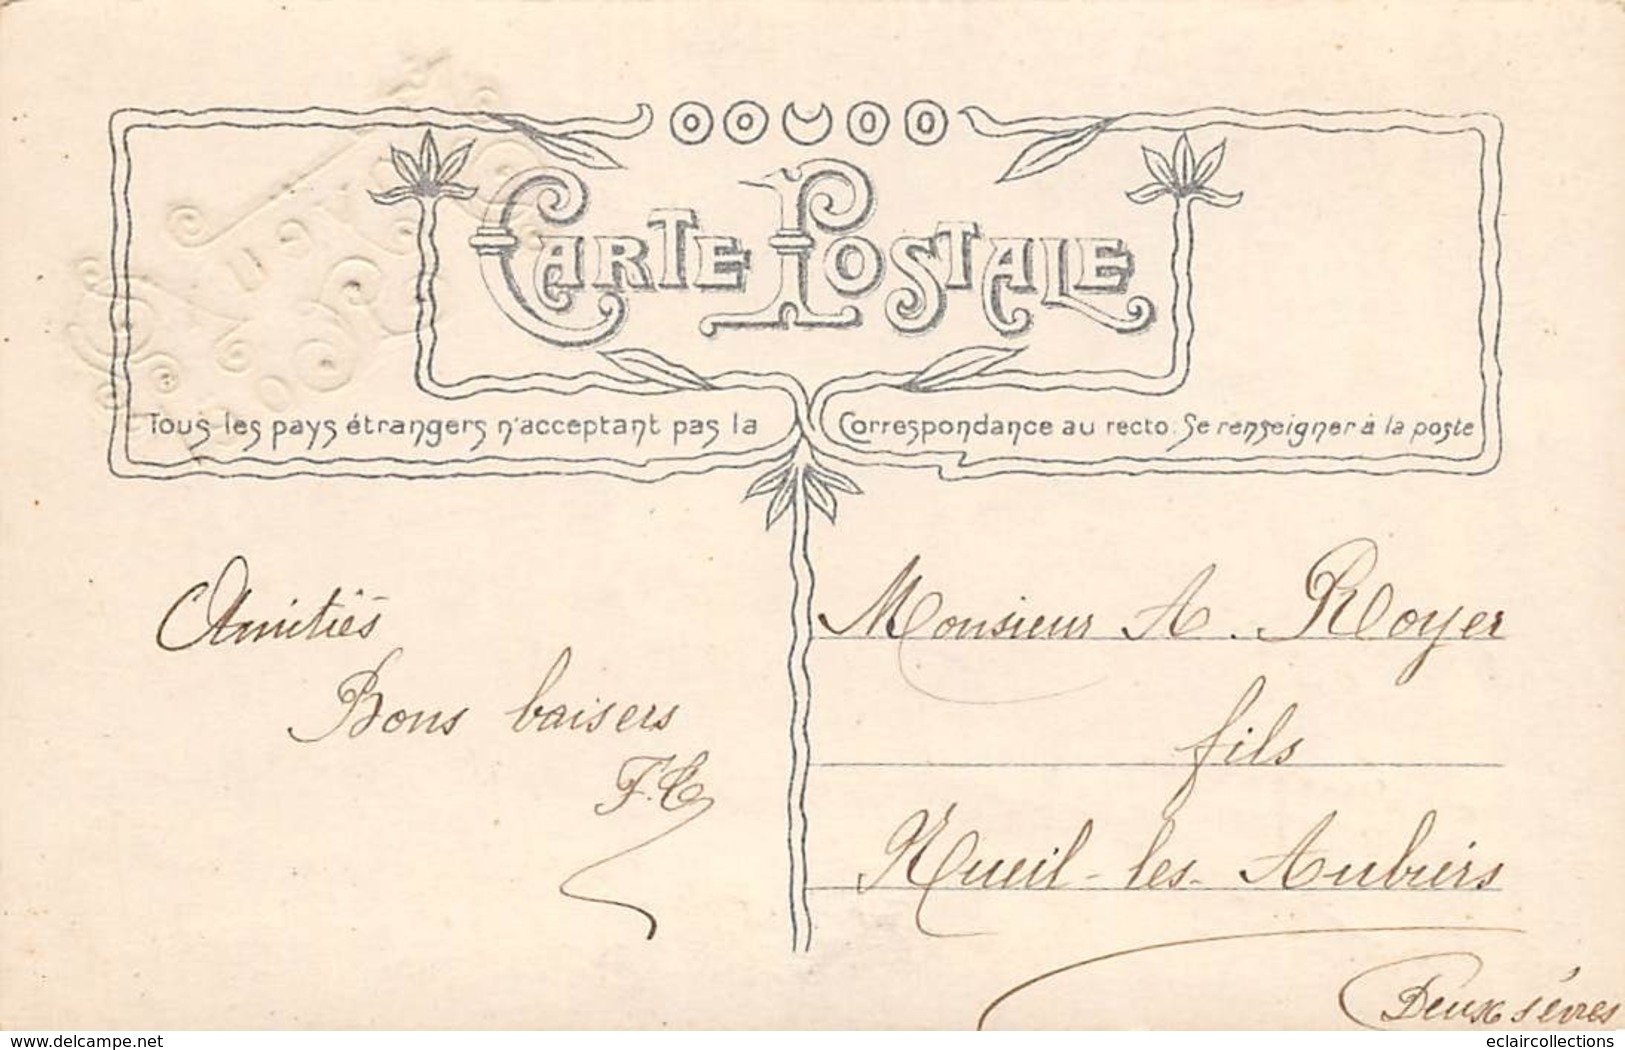 CARTE POSTALE
Tous les pays étrangers n'acceptant pas la Correspondance au recto. Se renseigner à la poste
Amitiés
Bons baisers
F. C
Monsieur A. Royer
fils
Nueil-les-Aubiers
Deux Sèvres
delcampe.net
eclaircollections